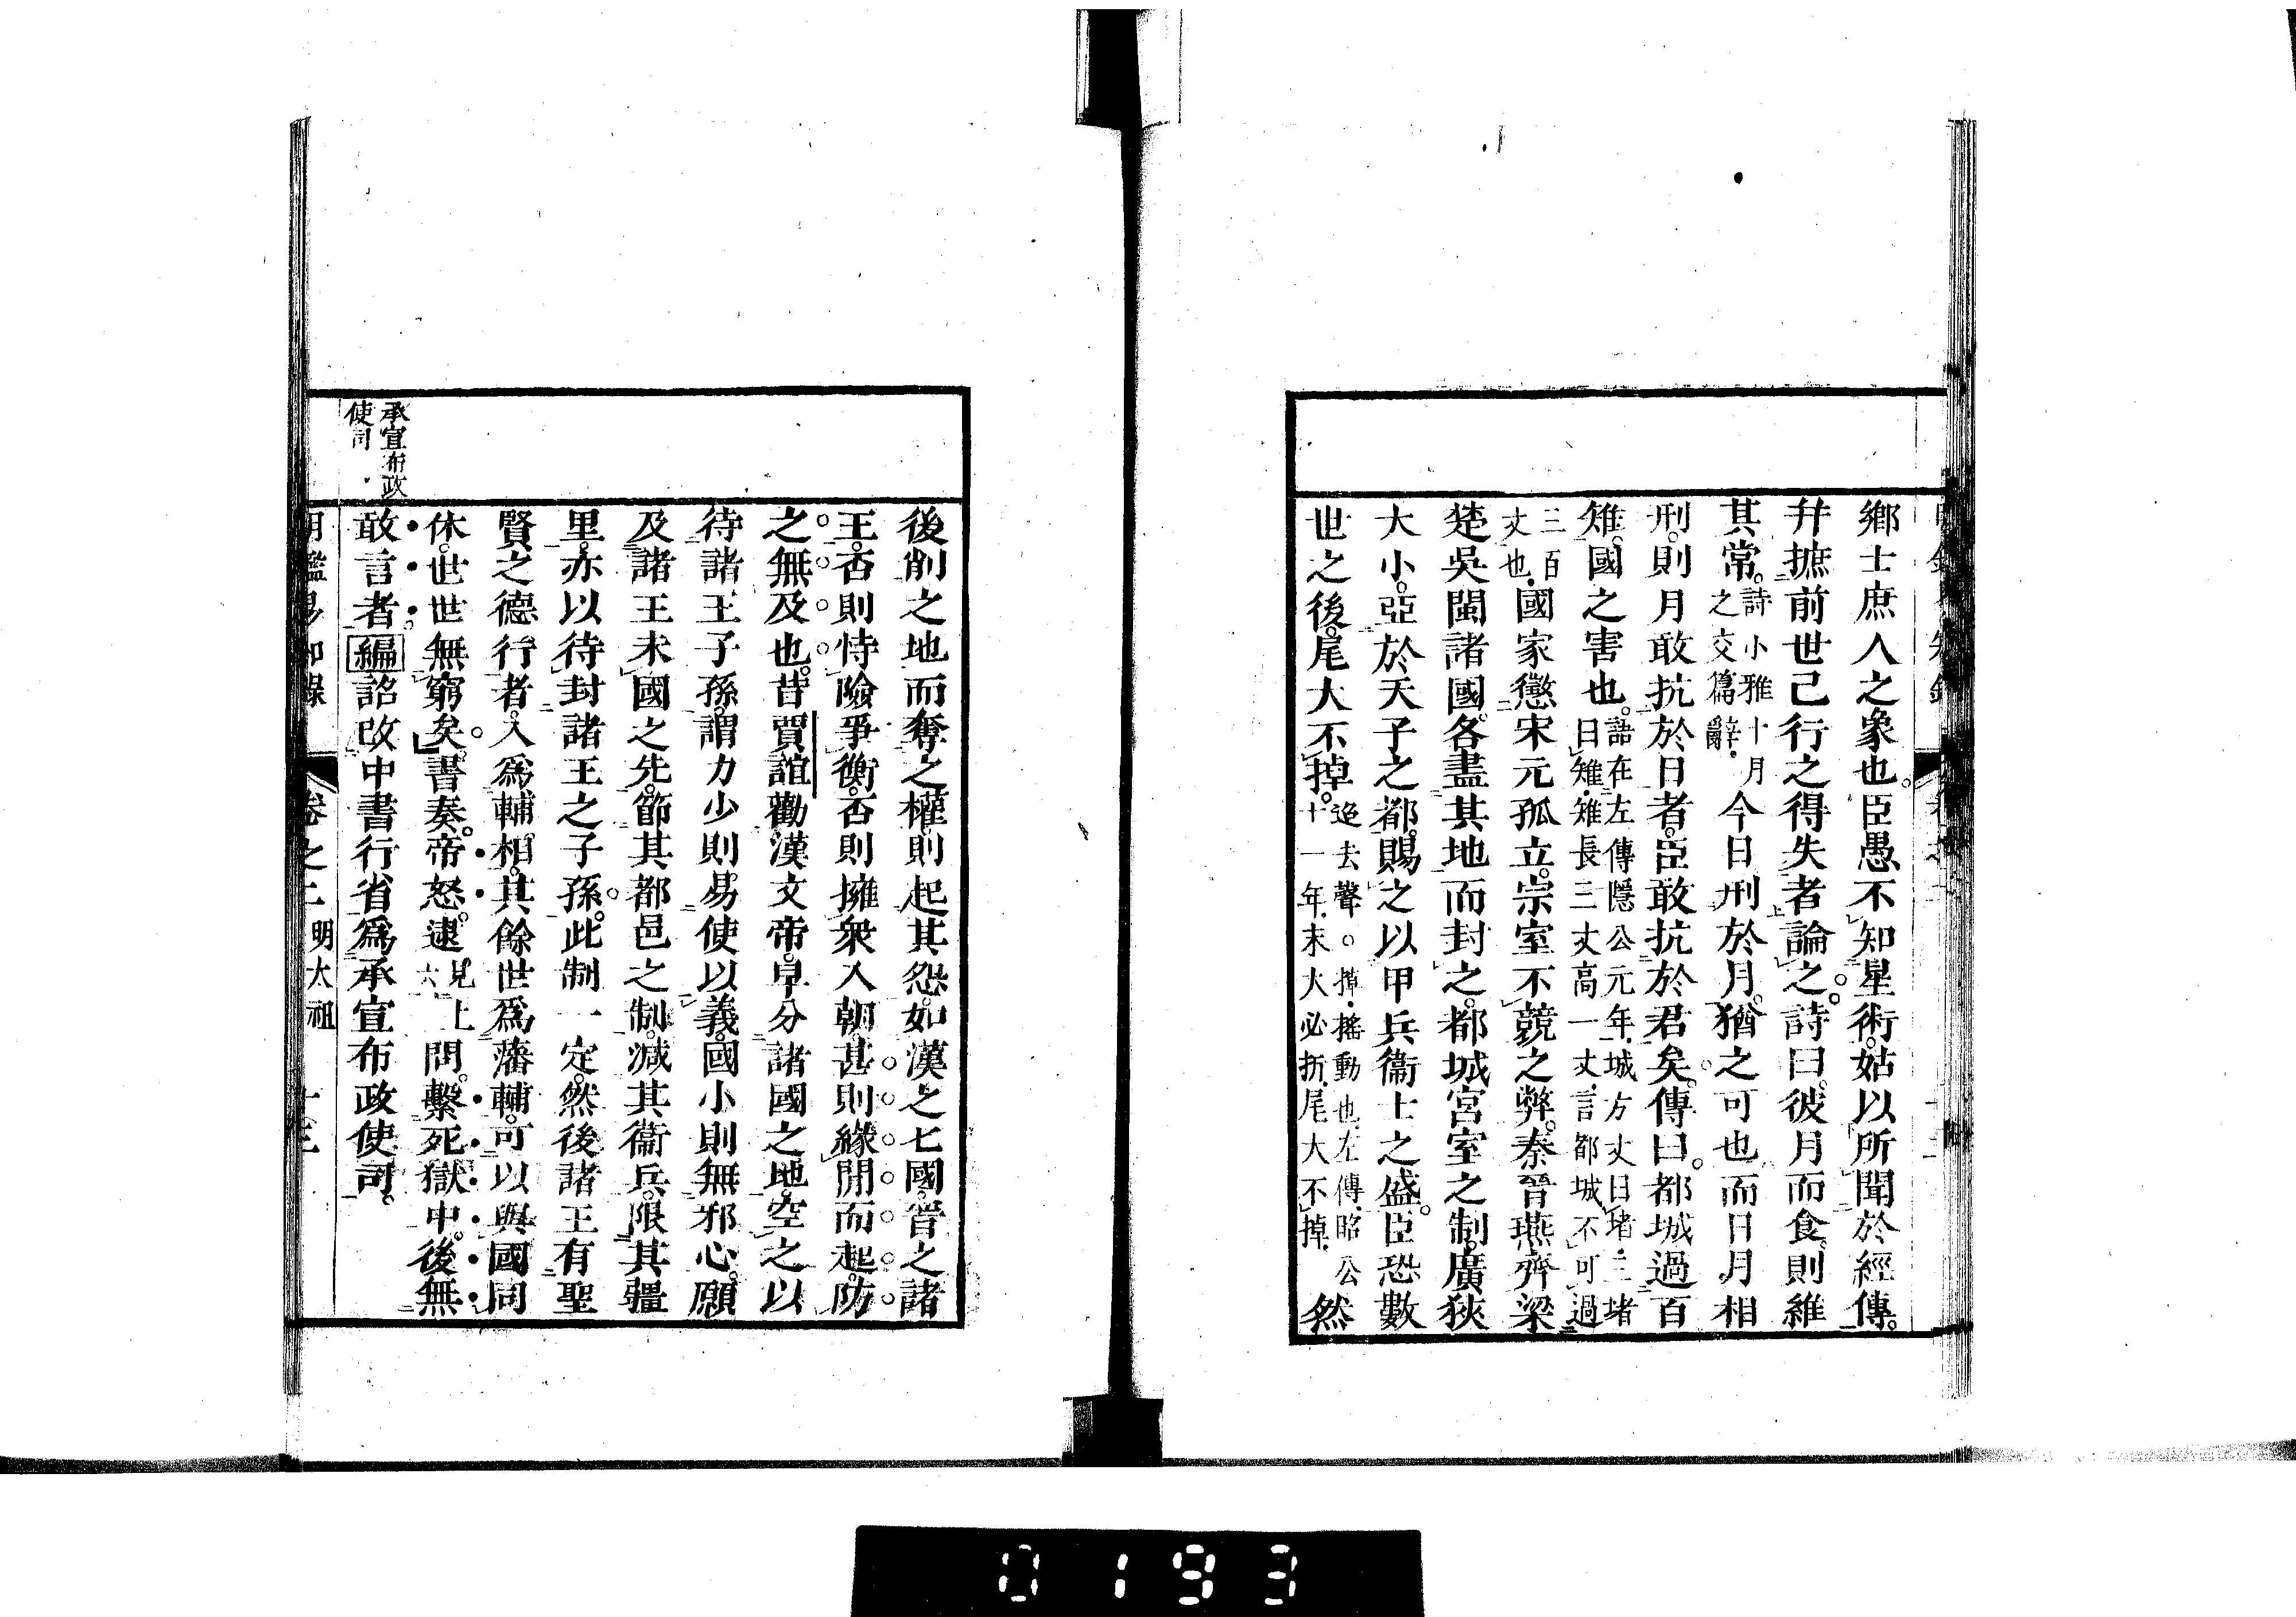 鄉士庶人之象也。臣愚不知星術。姑以所聞於經傳。
幷摭前世已行之得失者論之。詩曰。彼月而食。則維
其常。詩小雅十月之交篇辭。今日刑於月。猶之可也。而日月相
刑。則月敢抗於日者。臣敢抗於君矣。傳曰。都城過百
雉。國之害也。語在左傳隱公元年。城方丈曰堵。三堵曰雉。雉長三丈高一丈。言都城不可過
三百丈也。國家懲宋元孤立。宗室不競之弊。秦晉燕齊梁
楚吳閩諸國。各盡其地而封之。都城宮室之制。廣狹
大小。亞於天子之都。賜之以甲兵衞士之盛。臣恐數
世之後。尾大不掉。迨去聲。○掉。搖動也。左傳。昭公十一年。末大必折。尾大不掉。然
後削之地而奪之權。則起其怨。如漢之七國。晉之諸
王。否則恃險爭衡。否則擁衆入朝。甚則緣間而起。防
之無及也。昔賈誼勸漢文帝。早分諸國之地。空之以
待諸王子孫。謂力少則易使以義。國小則無邪心。願
及諸王未國之先。節其都邑之制。減其衞兵。限其疆
里。亦以待封諸王之子孫。此制一定。然後諸王有聖
賢之德行者。入爲輔相。其餘世爲藩輔。可以與國同
休。世世無窮矣。書奏。帝怒。逮見上六問。繫死獄中。後無
承宣布政
使司
敢言者編詔改中書行省爲承宣布政使司。
明鑑易知錄 卷之二 明太祖 十三
0193